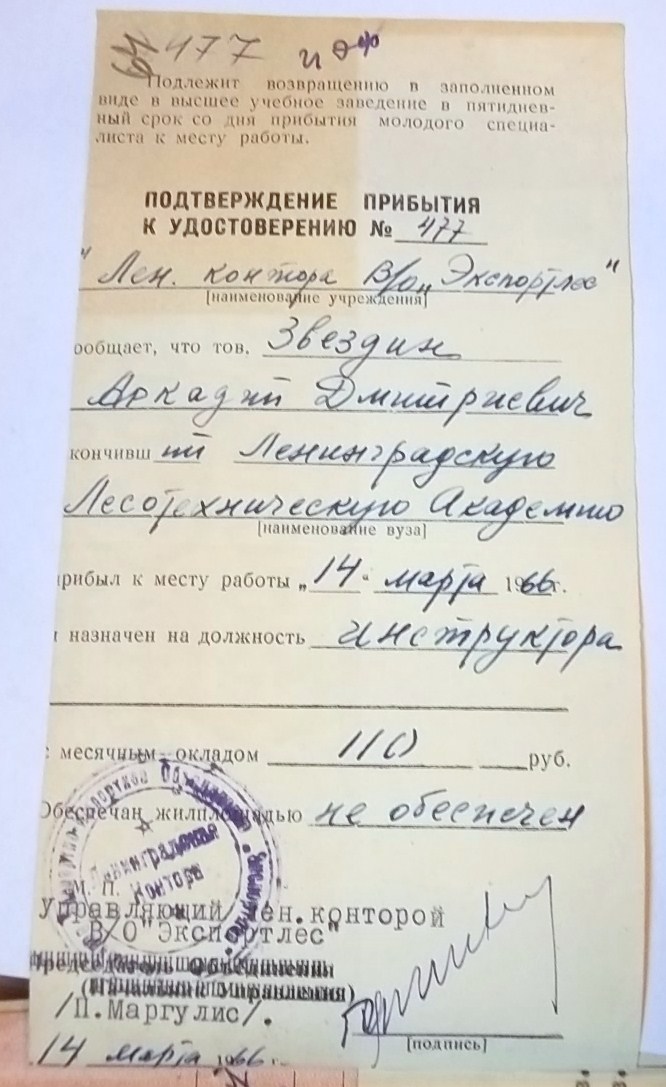 477
Подлежит возвращению в заполненном
виде в высшее учебное заведение в пятиднев-
ный срок со дня прибытия молодого специа-
листа к месту работы.
ПОДТВЕРЖДЕНИЕ ПРИБЫТИЯ
К УДОСТОВЕРЕНИЮ № 477
"Лен. контора В/о „Экспортлес"
[наименование учреждения]
ообщает, что тов, Звездин
Аркадий Дмитриевич
кончивш ий Ленинградскую
Лесотехническую Академию
[наименование вуза]
прибыл к месту работы „14" марта 1966г.
и назначен на должность инструктора
с месячным окладом 110 руб.
Обеспечан жилплощадью не обеспечен
М. П.
Ленинградская
Контора
Управляющий Лен.конторой
В/О"Экспортлес"
Председатель Объединения
(Начальник Управления)
/П.Маргулис/.
[подпись]
14 марта 1966 г.